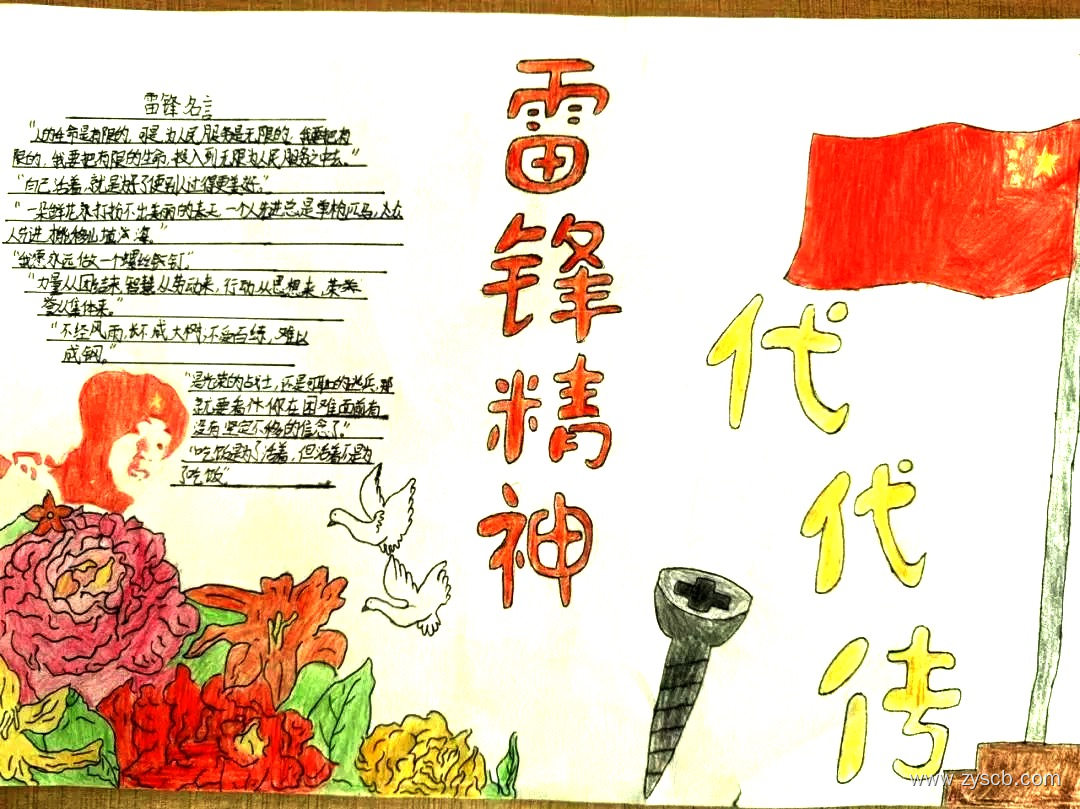 雷锋名言
"人的生命是有限的，可是，为人民服务是无限的，我要把有
限的，我要把有限的生命，投入到无限为人民服务之中去。"
"自己活着，就是为了使别人过得更美好。"
"一朵鲜花打扮不出美丽的春天，一个人先进总是单枪匹马，众
人先进
"我愿永远做一个螺丝钉"
"力量从团结来，智慧从劳动来，行动从思想来，荣
誉从集体来。"
"不经风雨，长不成大树，不受百练，难以
成钢。"
"是光荣的战士，还是可耻的逃兵，那
就要看你在困难面前有
没有坚定不移的信念了。"
"吃饭是为了活着，但活着不是为
了吃饭"
雷锋精神
代代传
www.zyscb.com